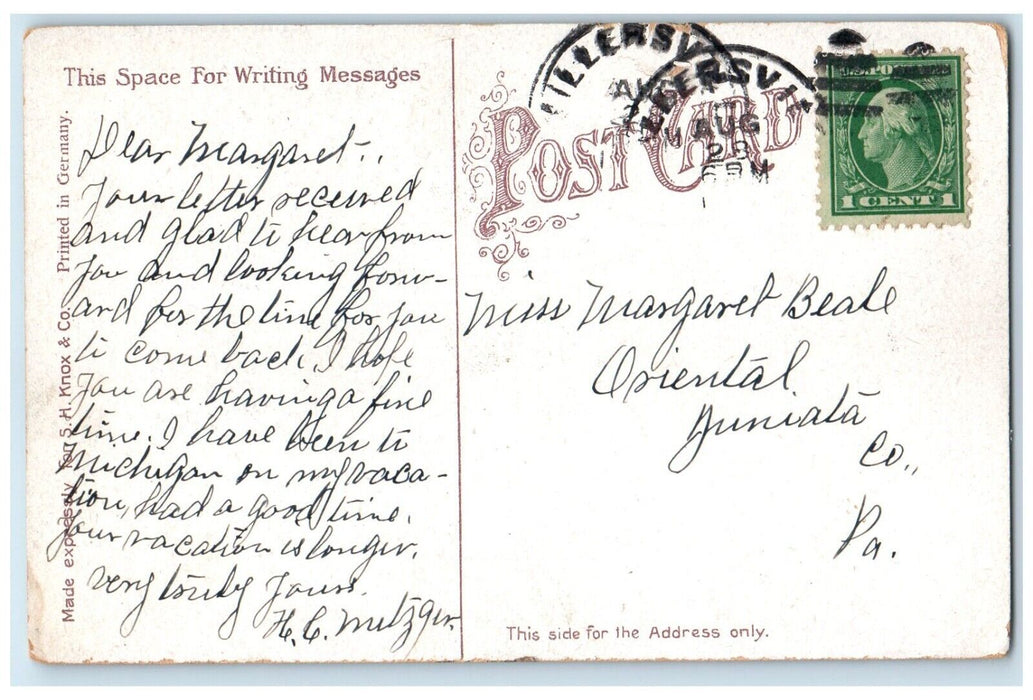 This Space For Writing Messages
Dear Margaret..
Your letter received
and glad to hear from
you and looking forw-
ard for the time for you
to come back. I hope
you are having a fine
time. I have been to
Michigan on my vaca-
tion, had a good time.
Your vacation is longer.
Very truly yours.
H. C. Metzger.
Made expressly for S. H. Knox & Co. Printed in Germany.
POST CARD
MILLERSV
AUG
23
6 PM
U.S. POS
1 CENT 1
Miss Margaret Beale
Oriental
Juniata
Co.,
Pa.
This side for the Address only.